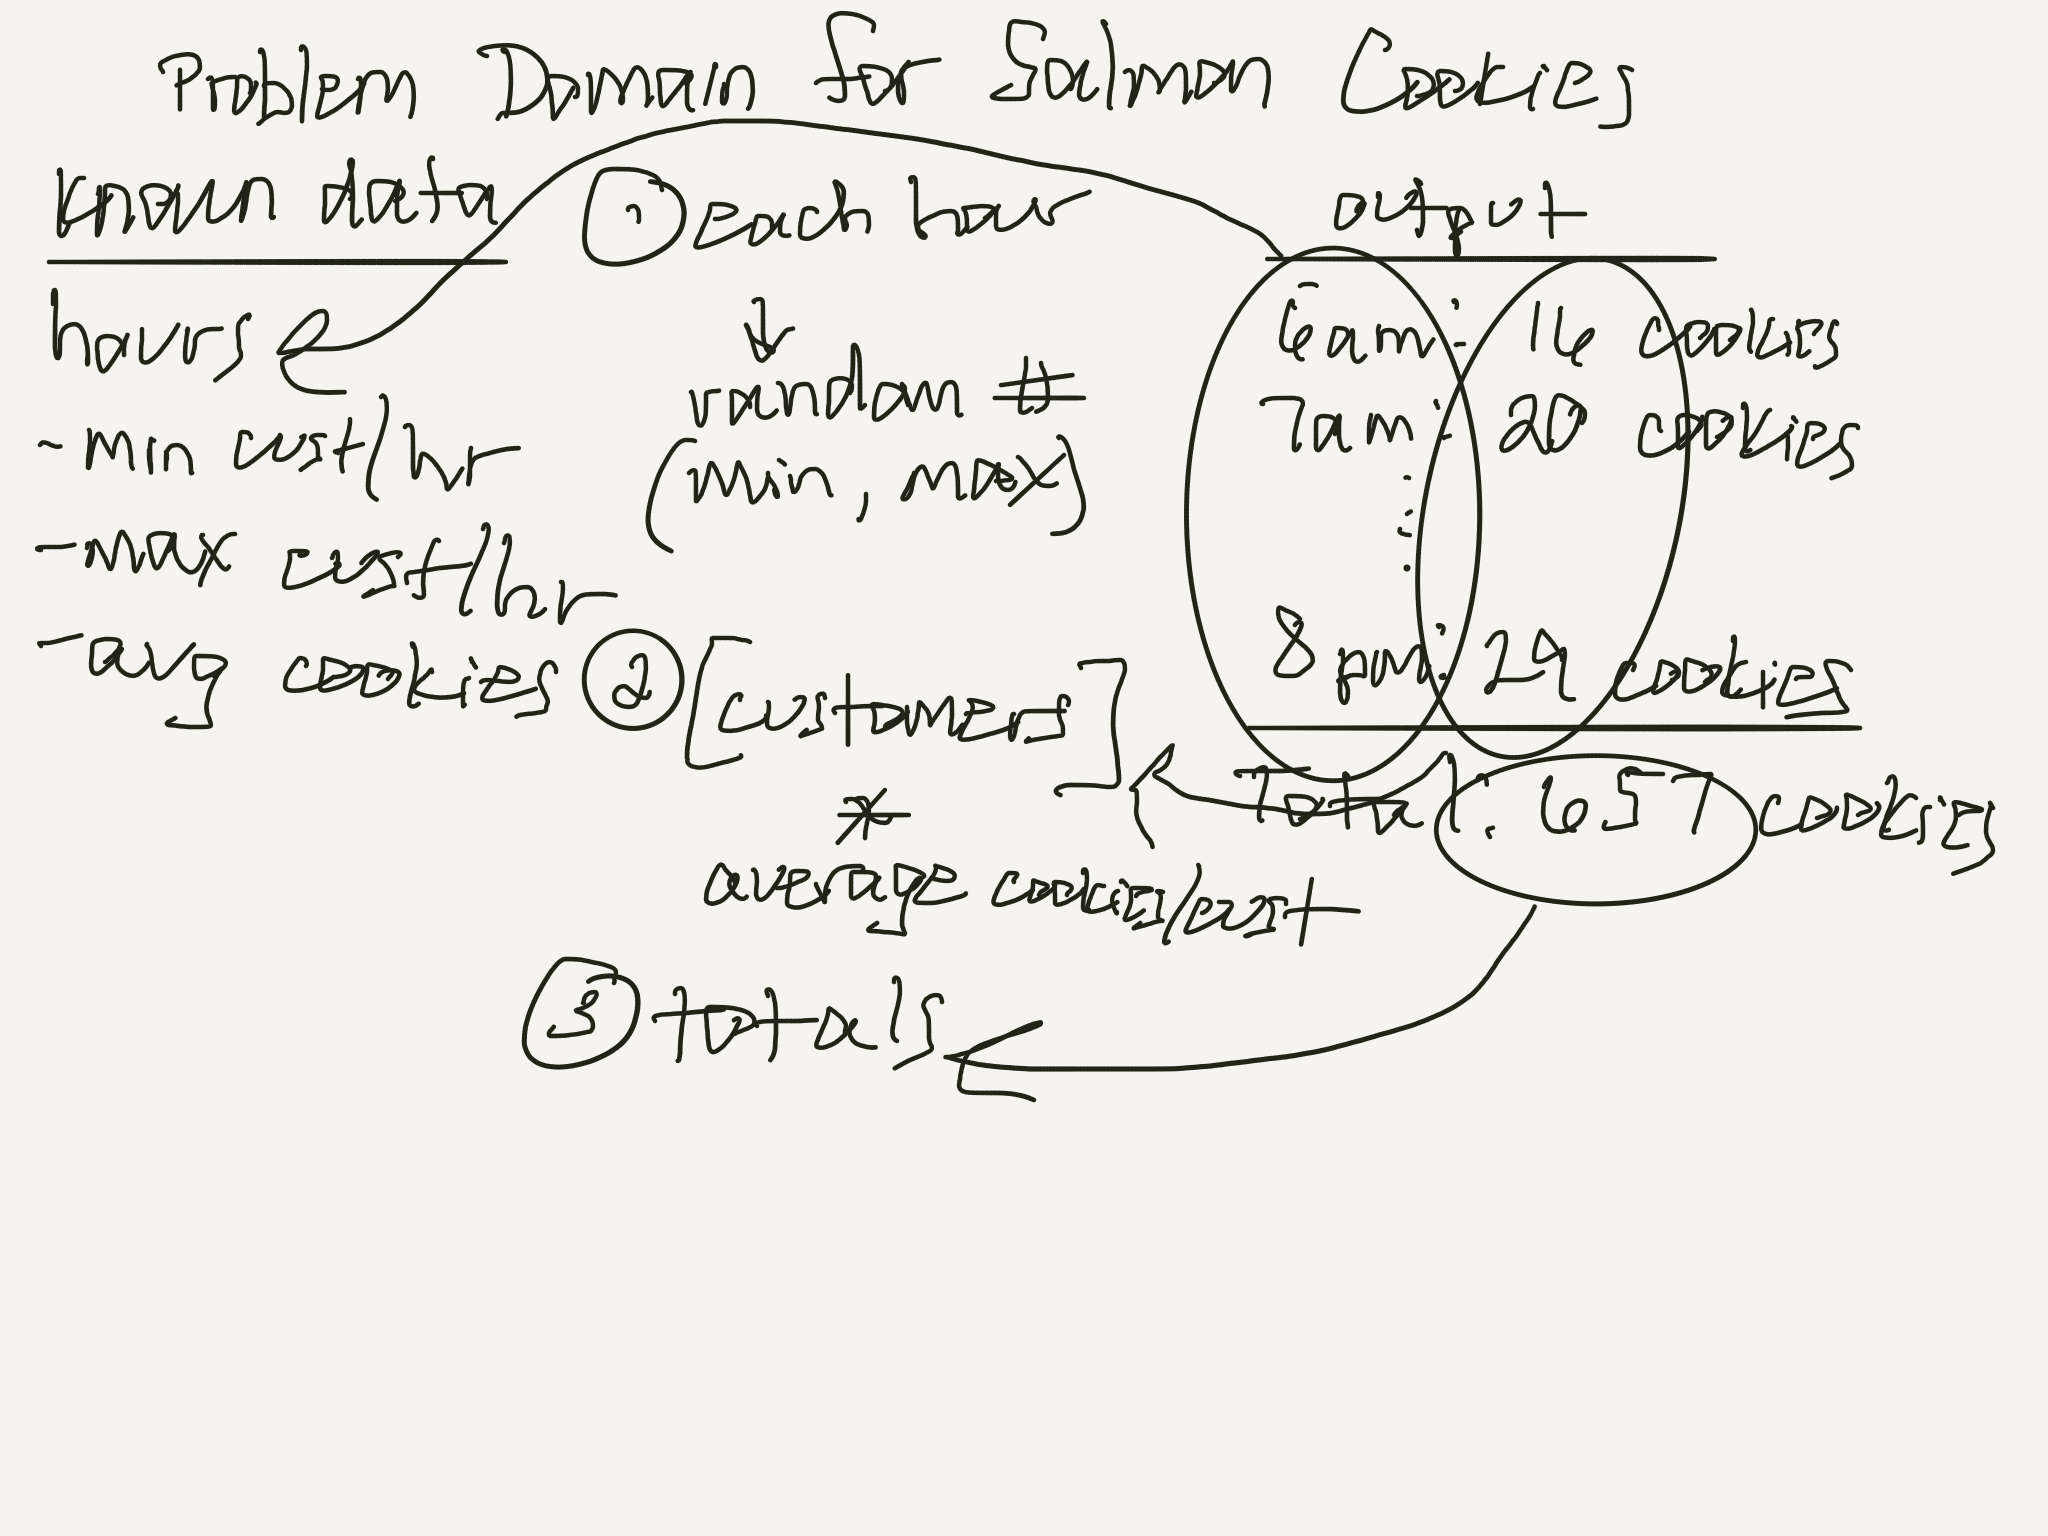 Problem Domain for Salmon Cookies
known data
hours
- min cust/hr
- max cust/hr
- avg cookies
1 each hour
random #
(min, max)
2 [customers]
*
average cookies/cust
3 totals
output
6am: 16 cookies
7am: 20 cookies
8pm: 29 cookies
Total: 657 cookies